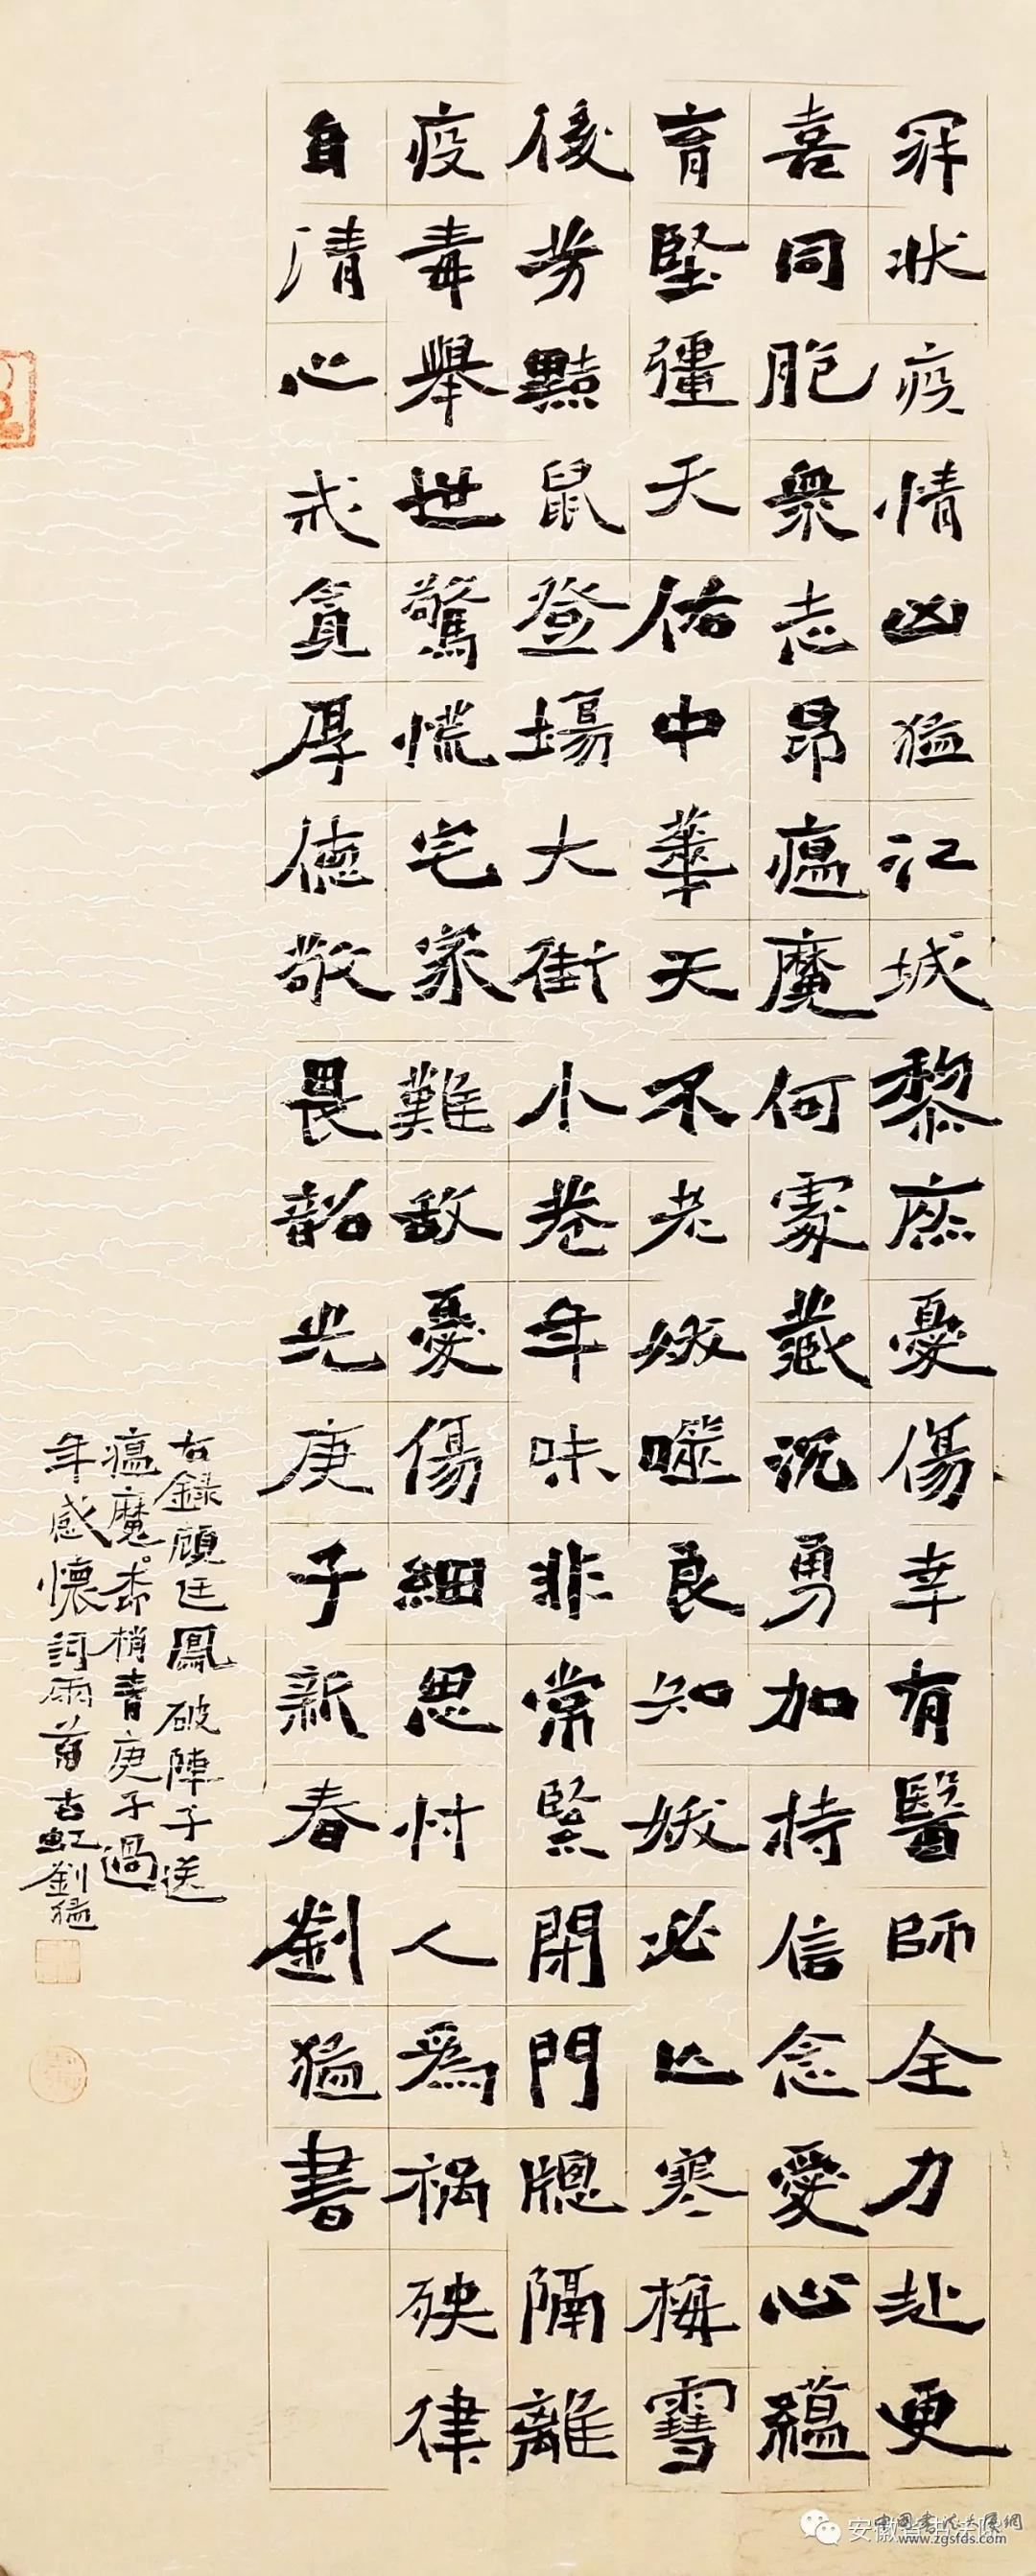 冠狀疫情凶猛江城黎庶憂傷幸有醫師全力赴更
喜同胞衆志昂瘟魔何處藏沉勇加持信念愛心蘊
育堅彊天佑中華天不老妖噬良知妖必亡寒梅雪
後芳黠鼠登場大街小巷年味非常緊閉門牕隔離
疫毒舉世驚慌宅家難敵憂傷細思忖人爲禍殃律
自清心戒貪厚德敬畏韶光庚子新春劉猛書
右錄顧廷鳳破陣子送
瘟魔柳梢青庚子過
年感懷詞兩首古虹劉猛
安徽省书法院
www.zgsfds.com